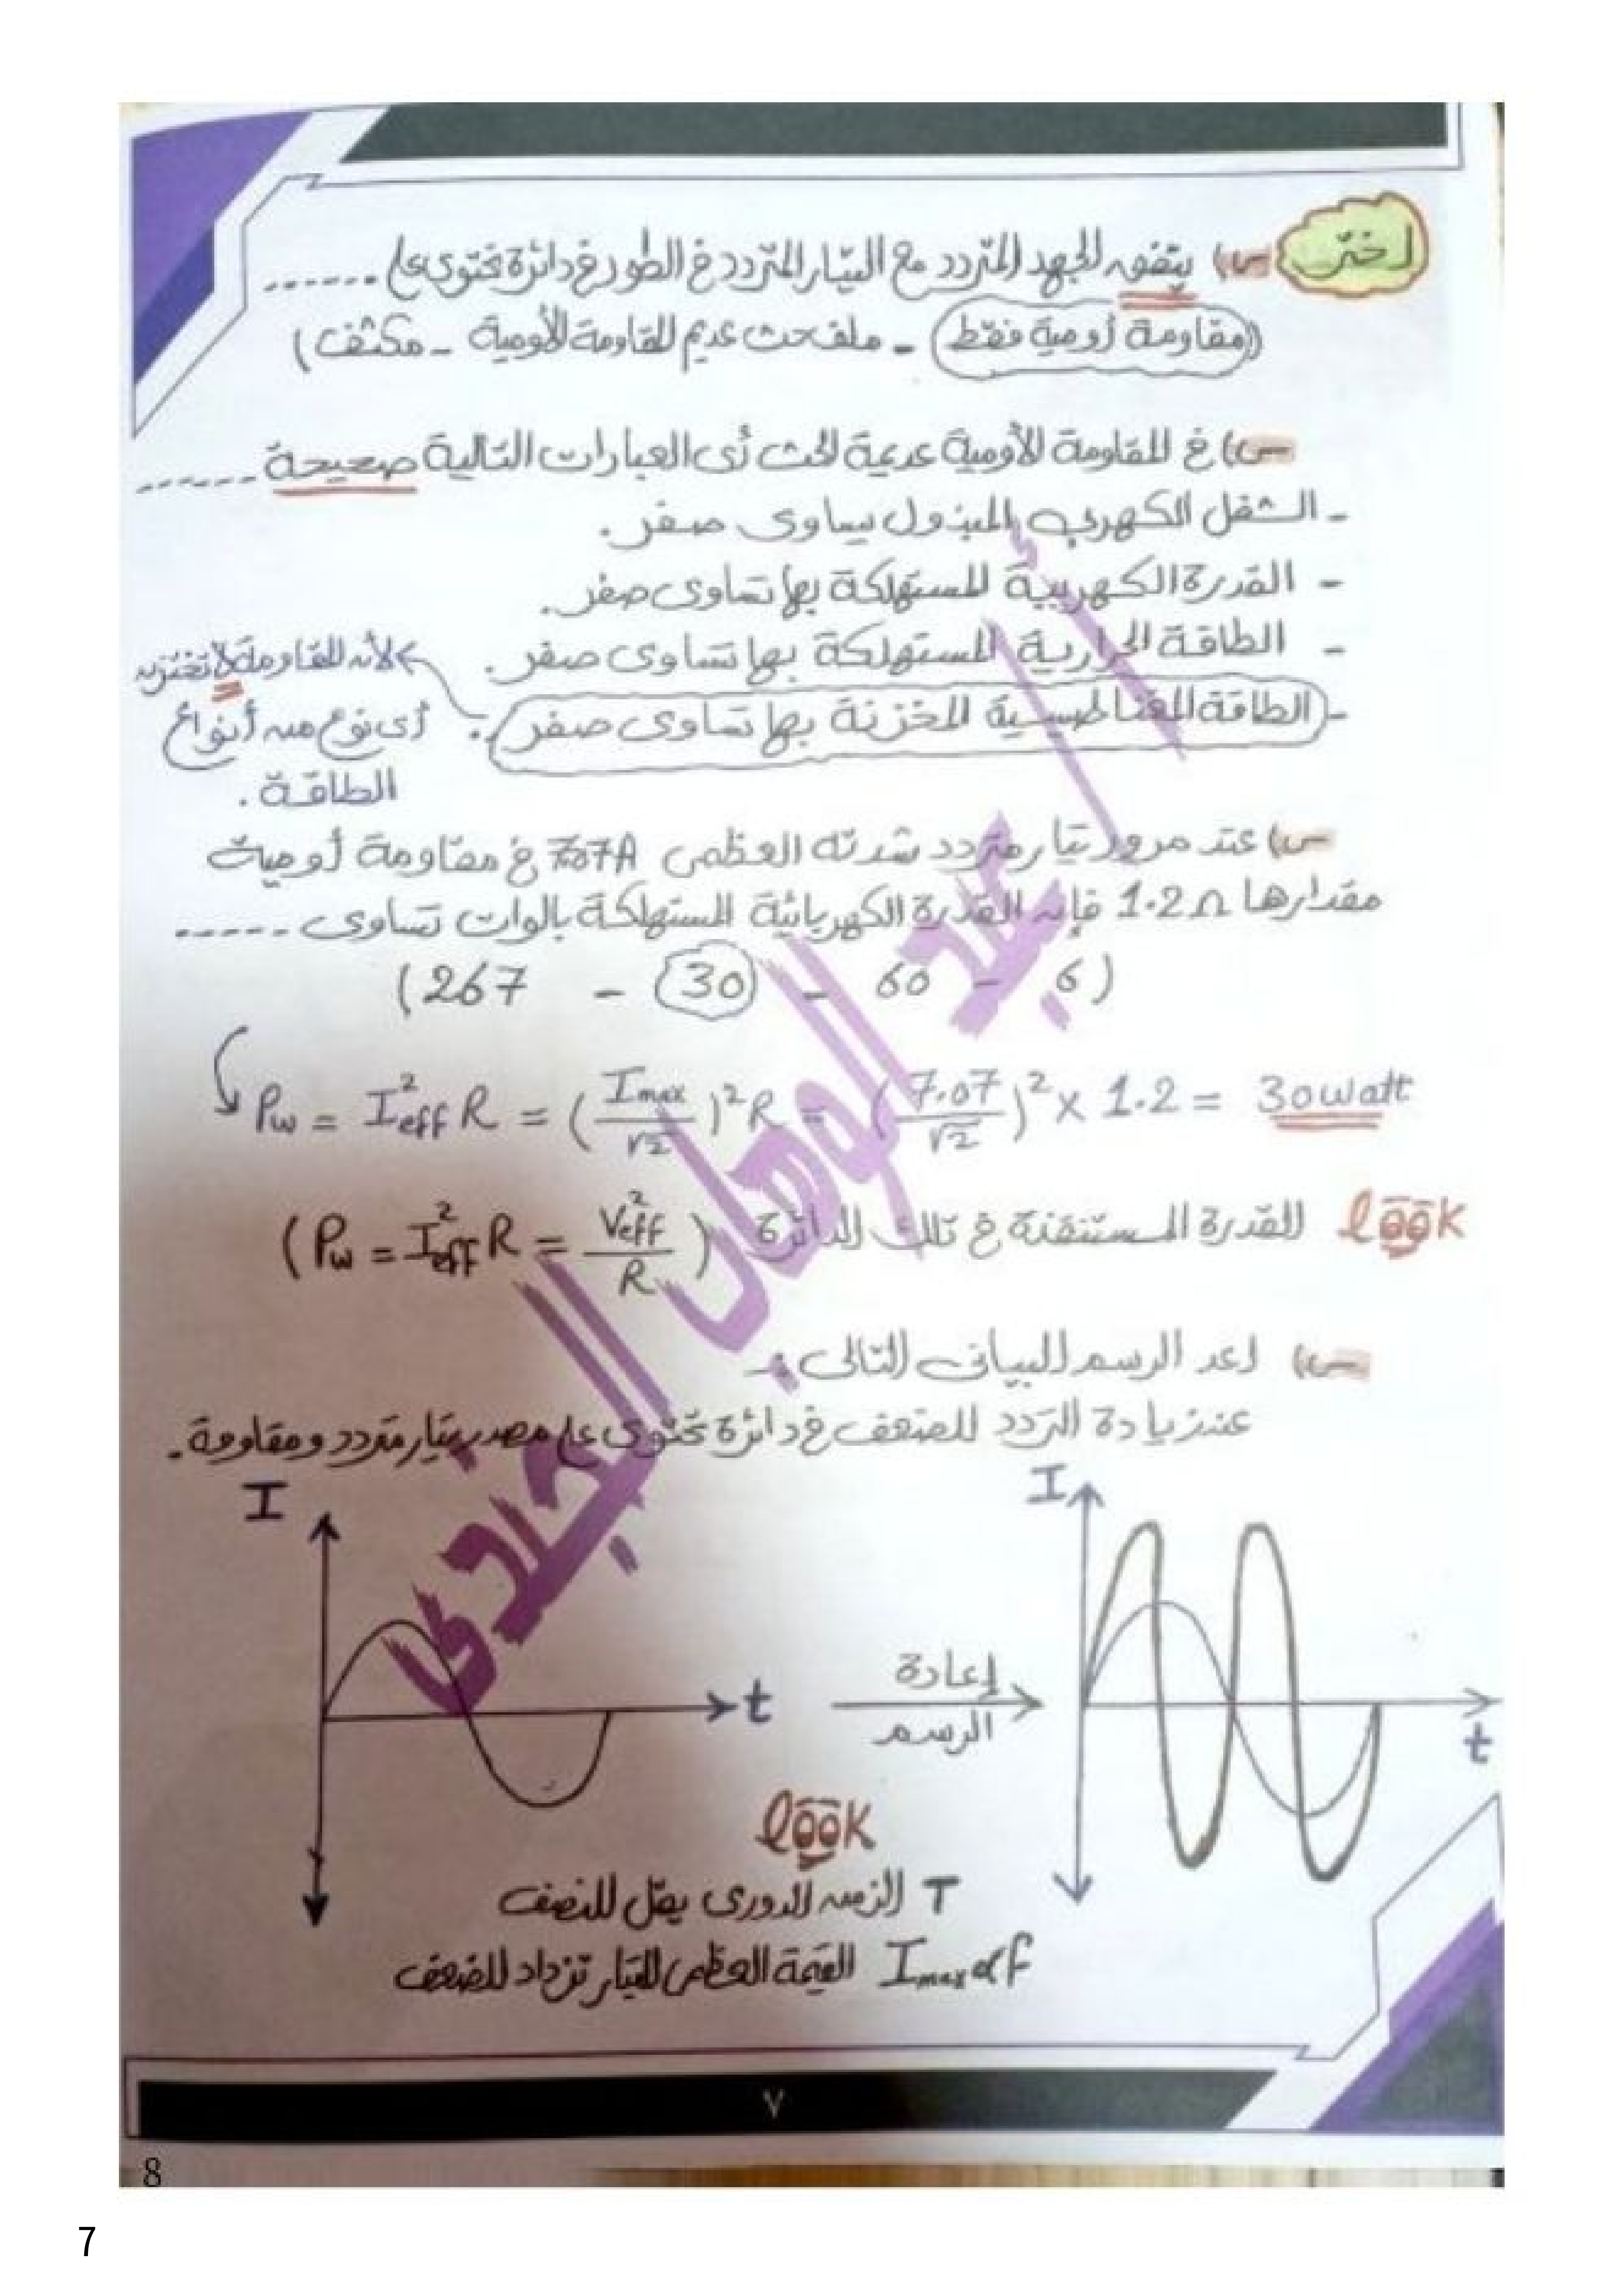 اختر
س) يتفق الجهد المتردد مع التيار المتردد في الطور في دائرة تحتوى على ------
(مقاومة أومية فقط - ملف حث عديم المقاومة الأومية - مكثف)
س) في المقاومة الأومية عديمة الحث أى العبارات التالية صحيحة ------
- الشغل الكهربي المبذول يساوى صفر.
- القدرة الكهربية المستهلكة بها تساوى صفر.
- الطاقة الحرارية المستهلكة بها تساوى صفر.
- الطاقة المغناطيسية المخزنة بها تساوى صفر.
لأن المقاومة لا تختزن
أى نوع من أنواع
الطاقة.
س) عند مرور تيار متردد شدته العظمى 7.07A في مقاومة أومية
مقدارها 1.2Ω فإن القدرة الكهربائية المستهلكة بالوات تساوى -----
(6 - 60 - 30 - 267)
Pw = I²eff R = (Imax/√2)² R = (7.07/√2)² × 1.2 = 30watt
look القدرة المستنفذة في تلك الدائرة (Pw = I²eff R = V²eff/R)
س) اعد الرسم البيانى التالى :-
عند زيادة التردد للضعف في دائرة تحتوى على مصدر تيار متردد ومقاومة.
I
t
إعادة
الرسم
I
t
look
T الزمن الدورى يقل للنصف
Imax α f القيمة العظمى للتيار تزداد للضعف
أ/ عبد الوهاب الجندى
٧
8
7